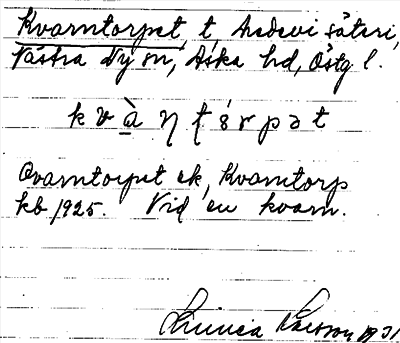 Kvarntorpet, t, Medevi säteri,
Västra Ny sn, Aska hd, Östg l.
k v à̱ ɳ ʈ ó r p ə t
Qvarntorpet ek, Kvarntorp
kb 1925. Vid en kvarn.
Linnéa Larsson 1931